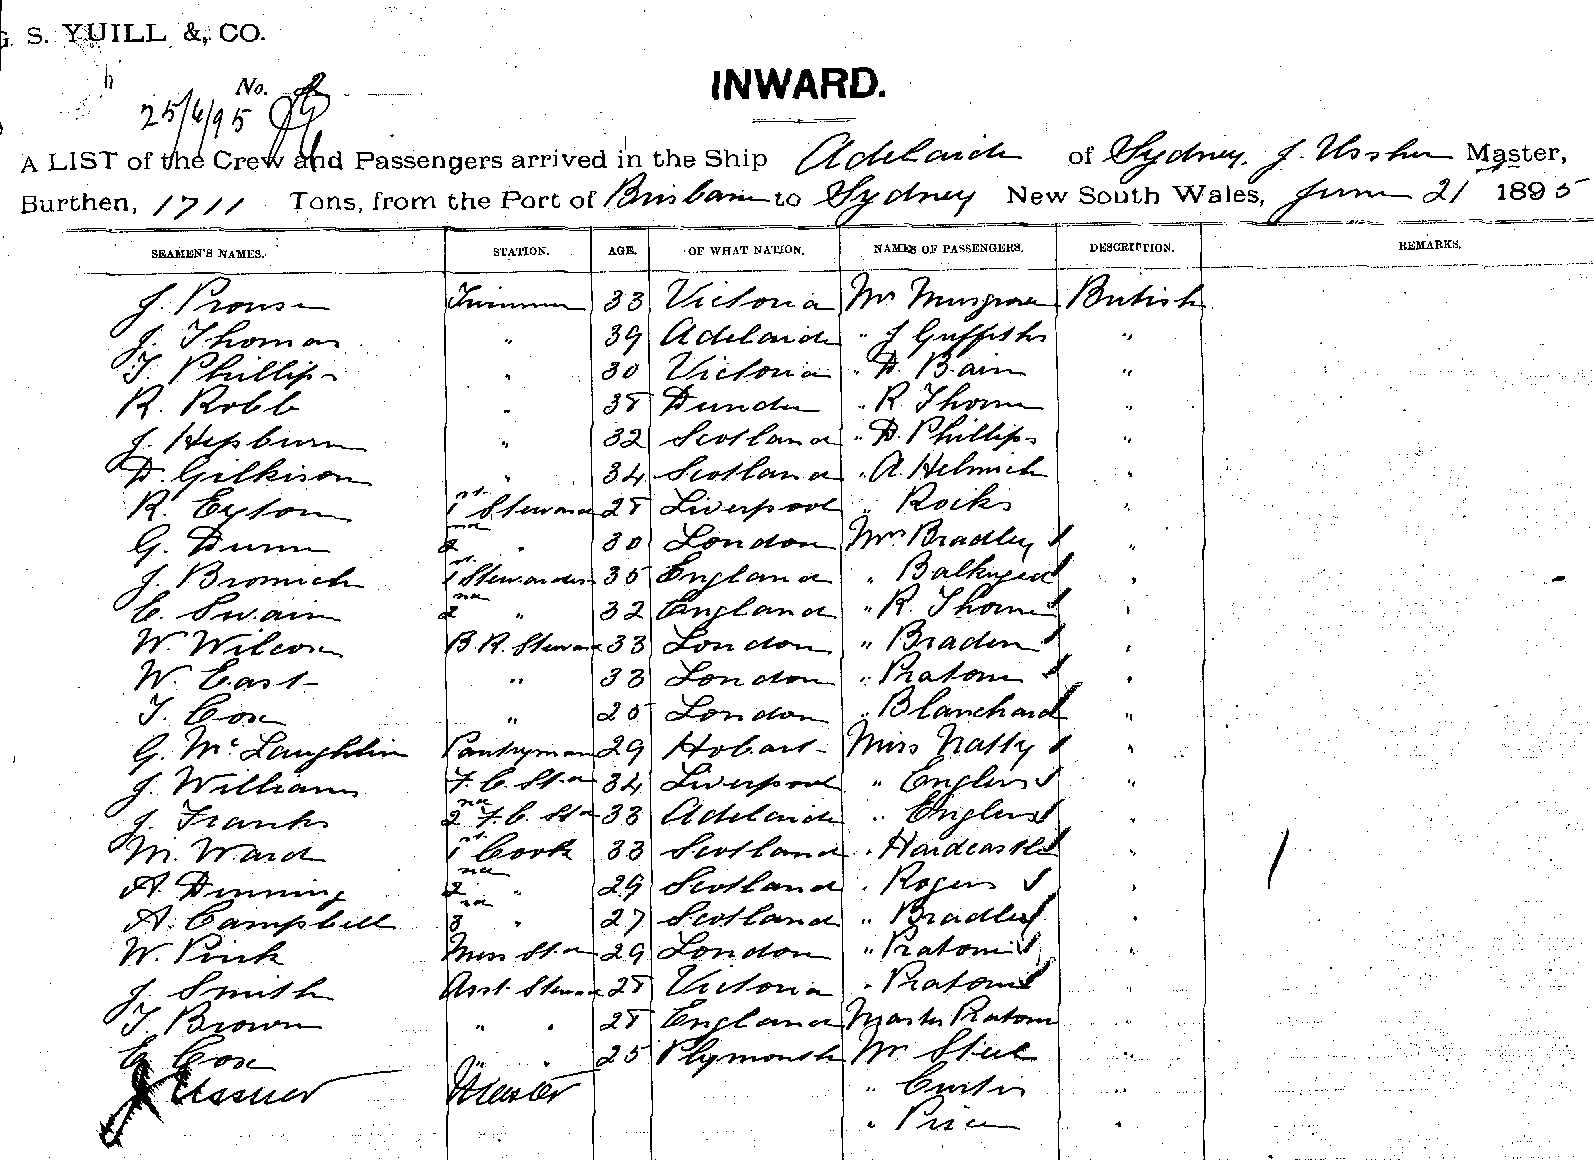 G. S. YUILL &, CO.
No.
25/6/95
INWARD.
A LIST of the Crew and Passengers arrived in the Ship Adelaide of Sydney, J. Ussher Master,
Burthen, 1711 Tons, from the Port of Brisbane to Sydney New South Wales, June 21 1895
SEAMEN'S NAMES. STATION. AGE. OF WHAT NATION. NAMES OF PASSENGERS. DESCRIPTION. REMARKS.
J. Prouse Trimmer 33 Victoria Mr Musgrave British
J. Thomas " 39 Adelaide " J Griffiths "
T. Phillips " 30 Victoria " D. Bain "
R. Robb " 38 Dundee " R. Thorne "
J. Hepburn " 32 Scotland " D. Phillips "
D. Gilkison " 34 Scotland " A. Helmich "
R. Eyton 1st Steward 28 Liverpool " Rocks "
G. Dunn 2nd " 30 London Mrs Bradley "
J. Bromich 1st Stewardess 35 England " "
E. Swain 2nd " 32 England " R. Thorne "
W. Wilcox B.R. Steward 33 London " Braden "
W. East " 33 London " Pratom "
T. Cox " 25 London " Blanchard "
G. McLaughlin Pantryman 29 Hobart Miss Natty "
J. Williams F.C. Std 34 Liverpool " Englers "
J. Franks 2nd F.C. Std 33 Adelaide " Englers "
M. Ward 1st Cook 33 Scotland " Hardcastle "
A. Dinning 2nd " 29 Scotland " Rogers "
A. Campbell 3rd " 27 Scotland " Bradley "
W. Pink Mess Std 29 London " Pratom "
J. Smith Asst. Steward 28 Victoria " Pratom "
T. Brown " " 28 England Master Pratom "
E. Cox " " 25 Plymouth Mr Steel "
J Ussher Master " Curtis "
" Price "